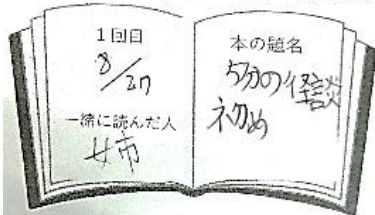 1回目
8/27
一緒に読んだ人
姉
本の題名
5分の怪談
初め